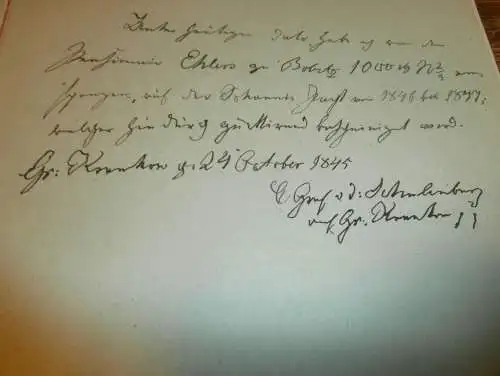 Unter heutigen Dato hab ich von den
Pensionair Ehlers zu Bobitz 1000 rth N 2/3 em-
pfangen, auf der Johannis Pacht von 1846 bis 1847;
welcher hierdurch quittirend bescheiniget wird.
Gr: Krankow d. 24 October 1845
C Graf v. d: Schulenburg
auf Gr. Krankow